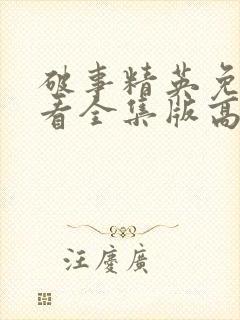 破事精英免
看全集版高
汪慶廣